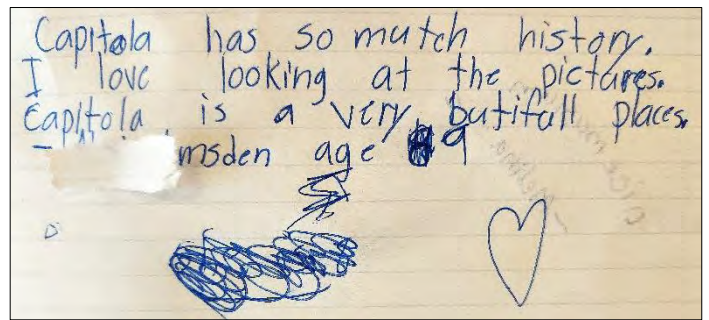 Capitola has so mutch history.
I love looking at the pictures.
Capitola is a very butifull places.
msden age 9